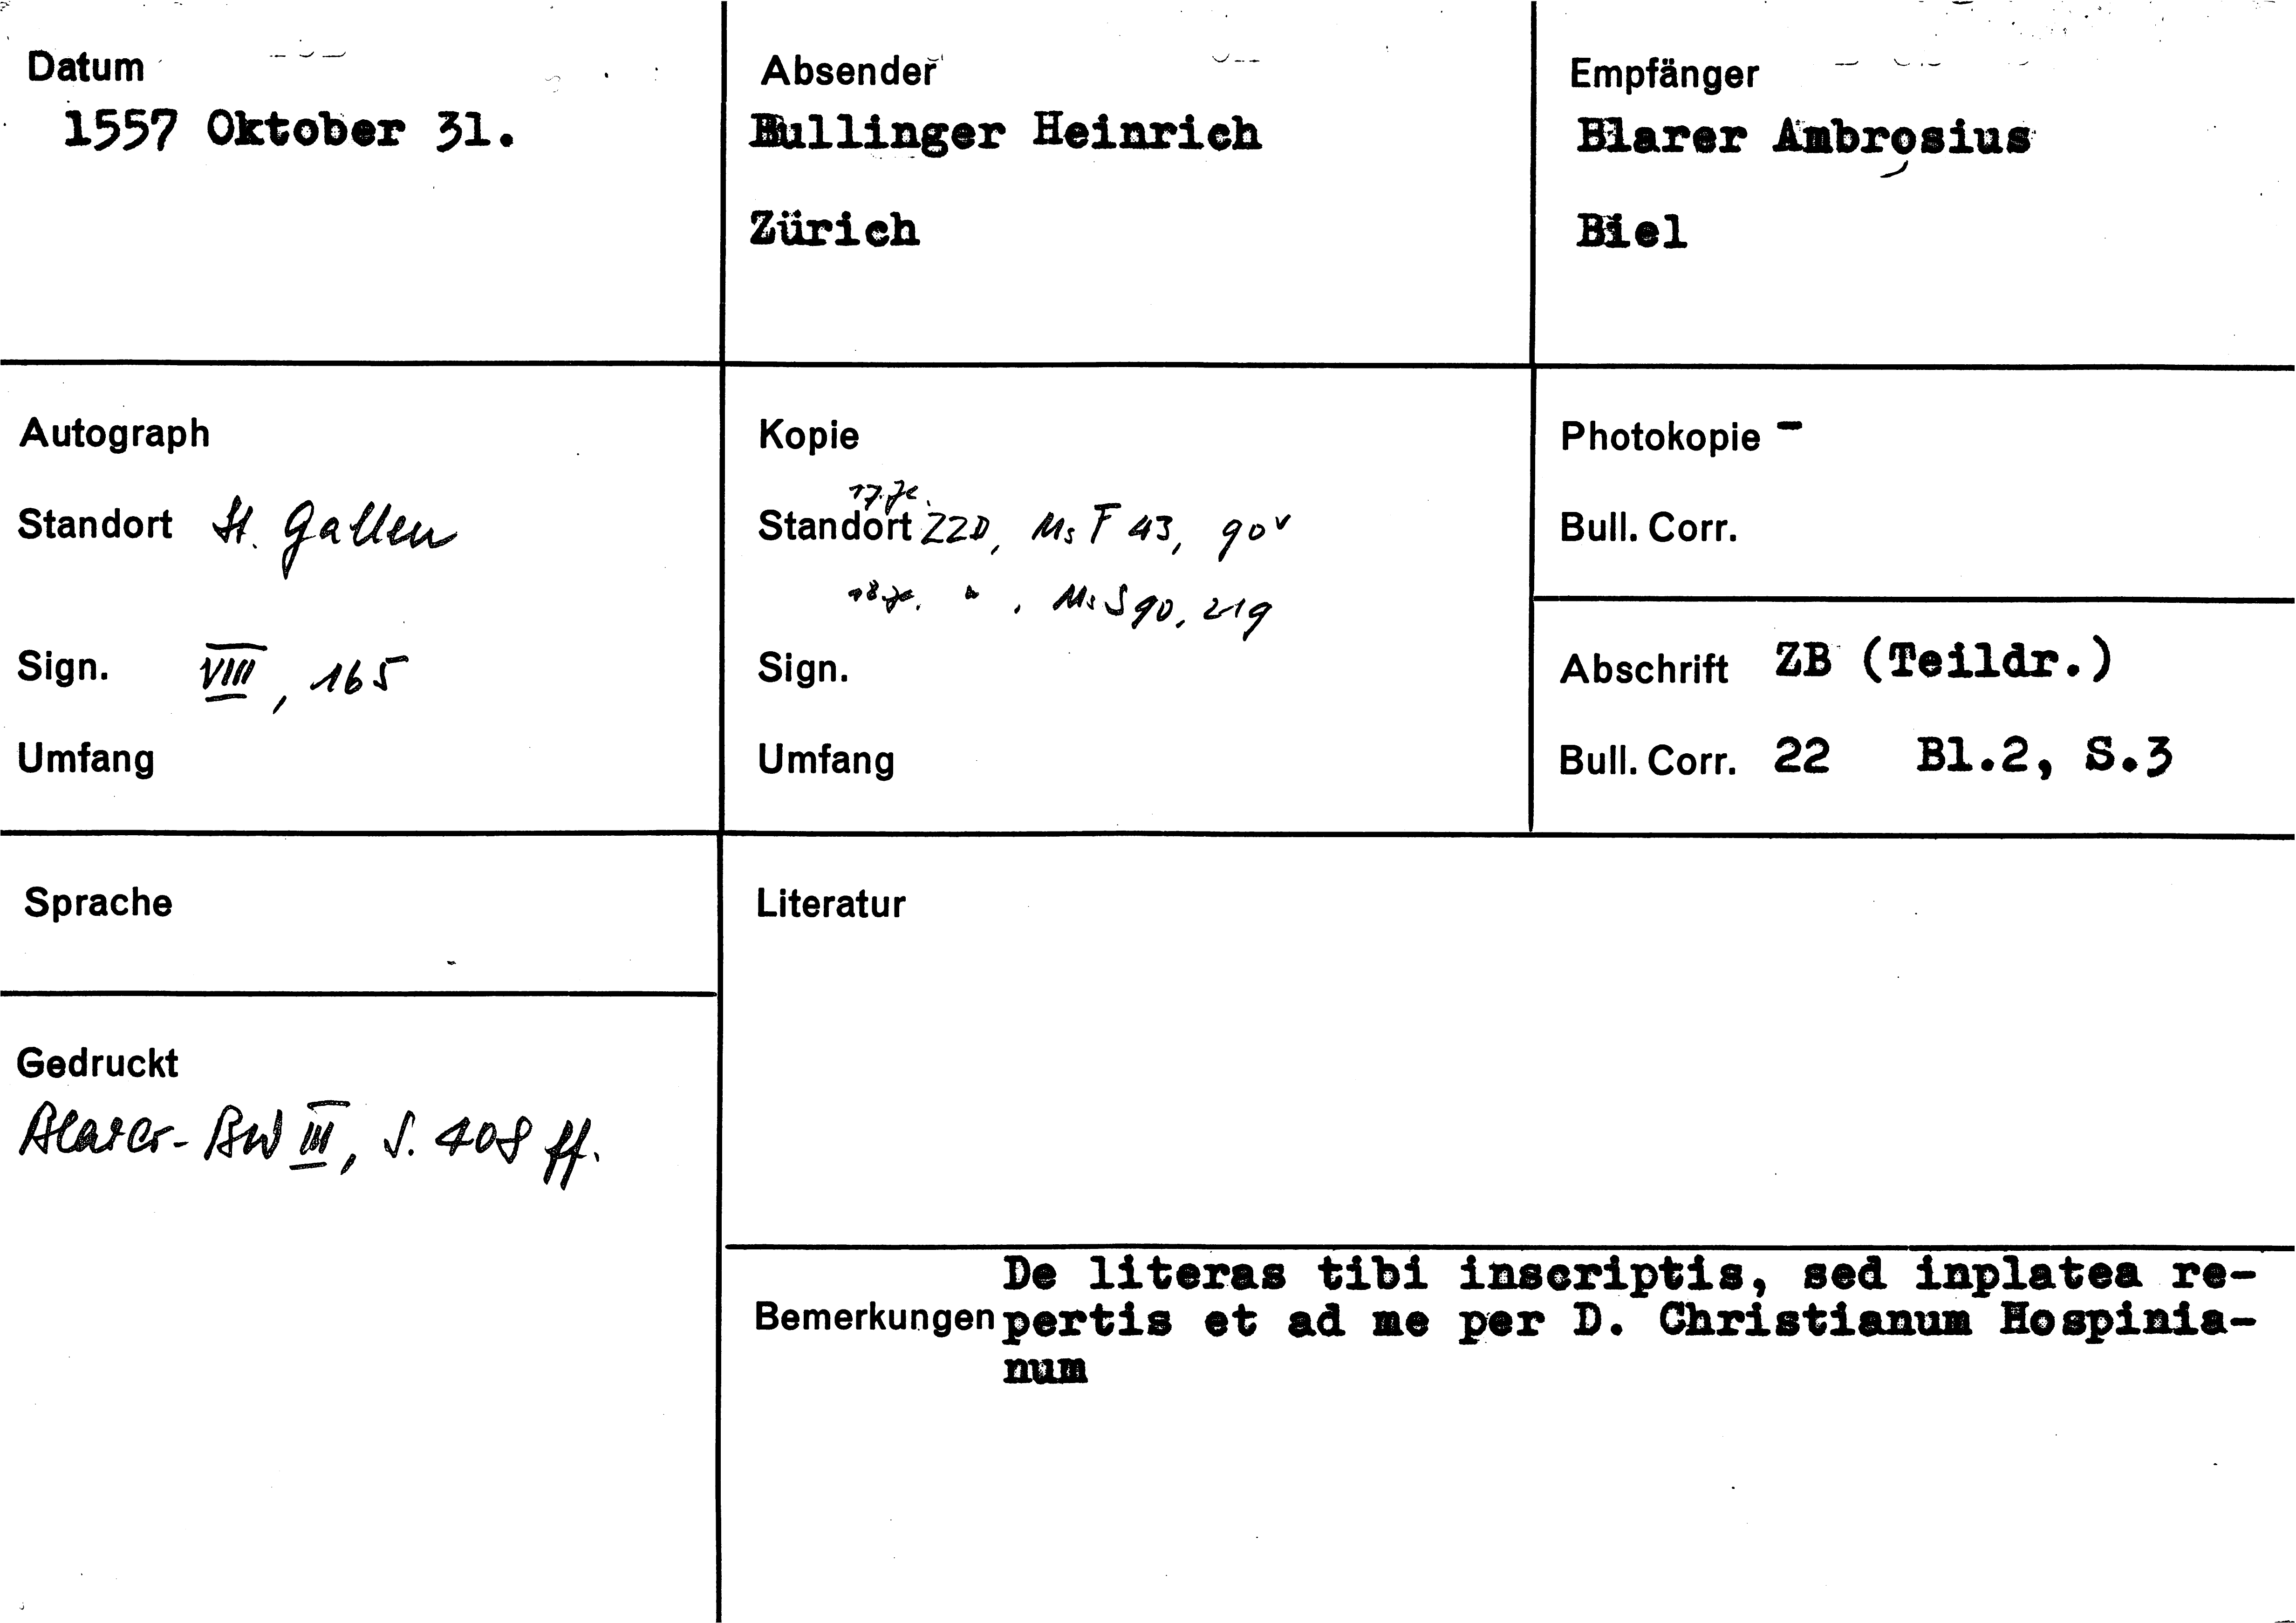 Datum
1557 Oktober 31.
Absender
Bullinger Heinrich
Zürich
Empfänger
Blarer Ambrosius
Biel
Autograph
Standort St. Gallen
Sign. VIII, 165
Umfang
Kopie
17. Jh.
Standort ZZB, Ms F 43, 90v
18. Jh. " , Ms S 90, 219
Sign.
Umfang
Photokopie -
Bull. Corr.
Abschrift ZB (Teildr.)
Bull. Corr. 22 Bl.2, S.3
Sprache
Gedruckt
Blarer-BW III, S. 408 ff.
Literatur
Bemerkungen
De literas tibi inscriptis, sed inplatea re-
pertis et ad me per D. Christianum Hospinia-
num